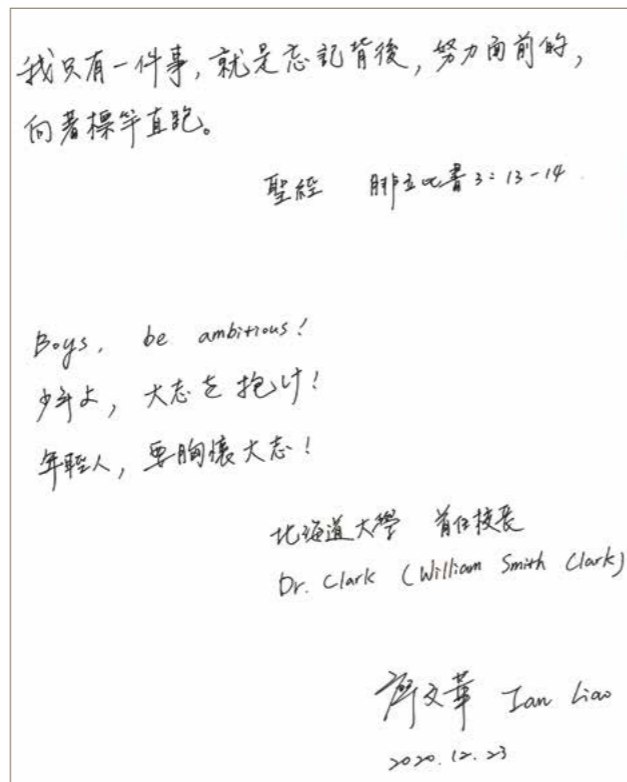 我只有一件事，就是忘記背後，努力面前的，
向著標竿直跑。
聖經 腓立比書 3：13-14
Boys, be ambitious!
少年よ，大志を抱け！
年輕人，要胸懷大志！
北海道大學 首任校長
Dr. Clark (William Smith Clark)
廖文華 Ian Liao
2020.12.23